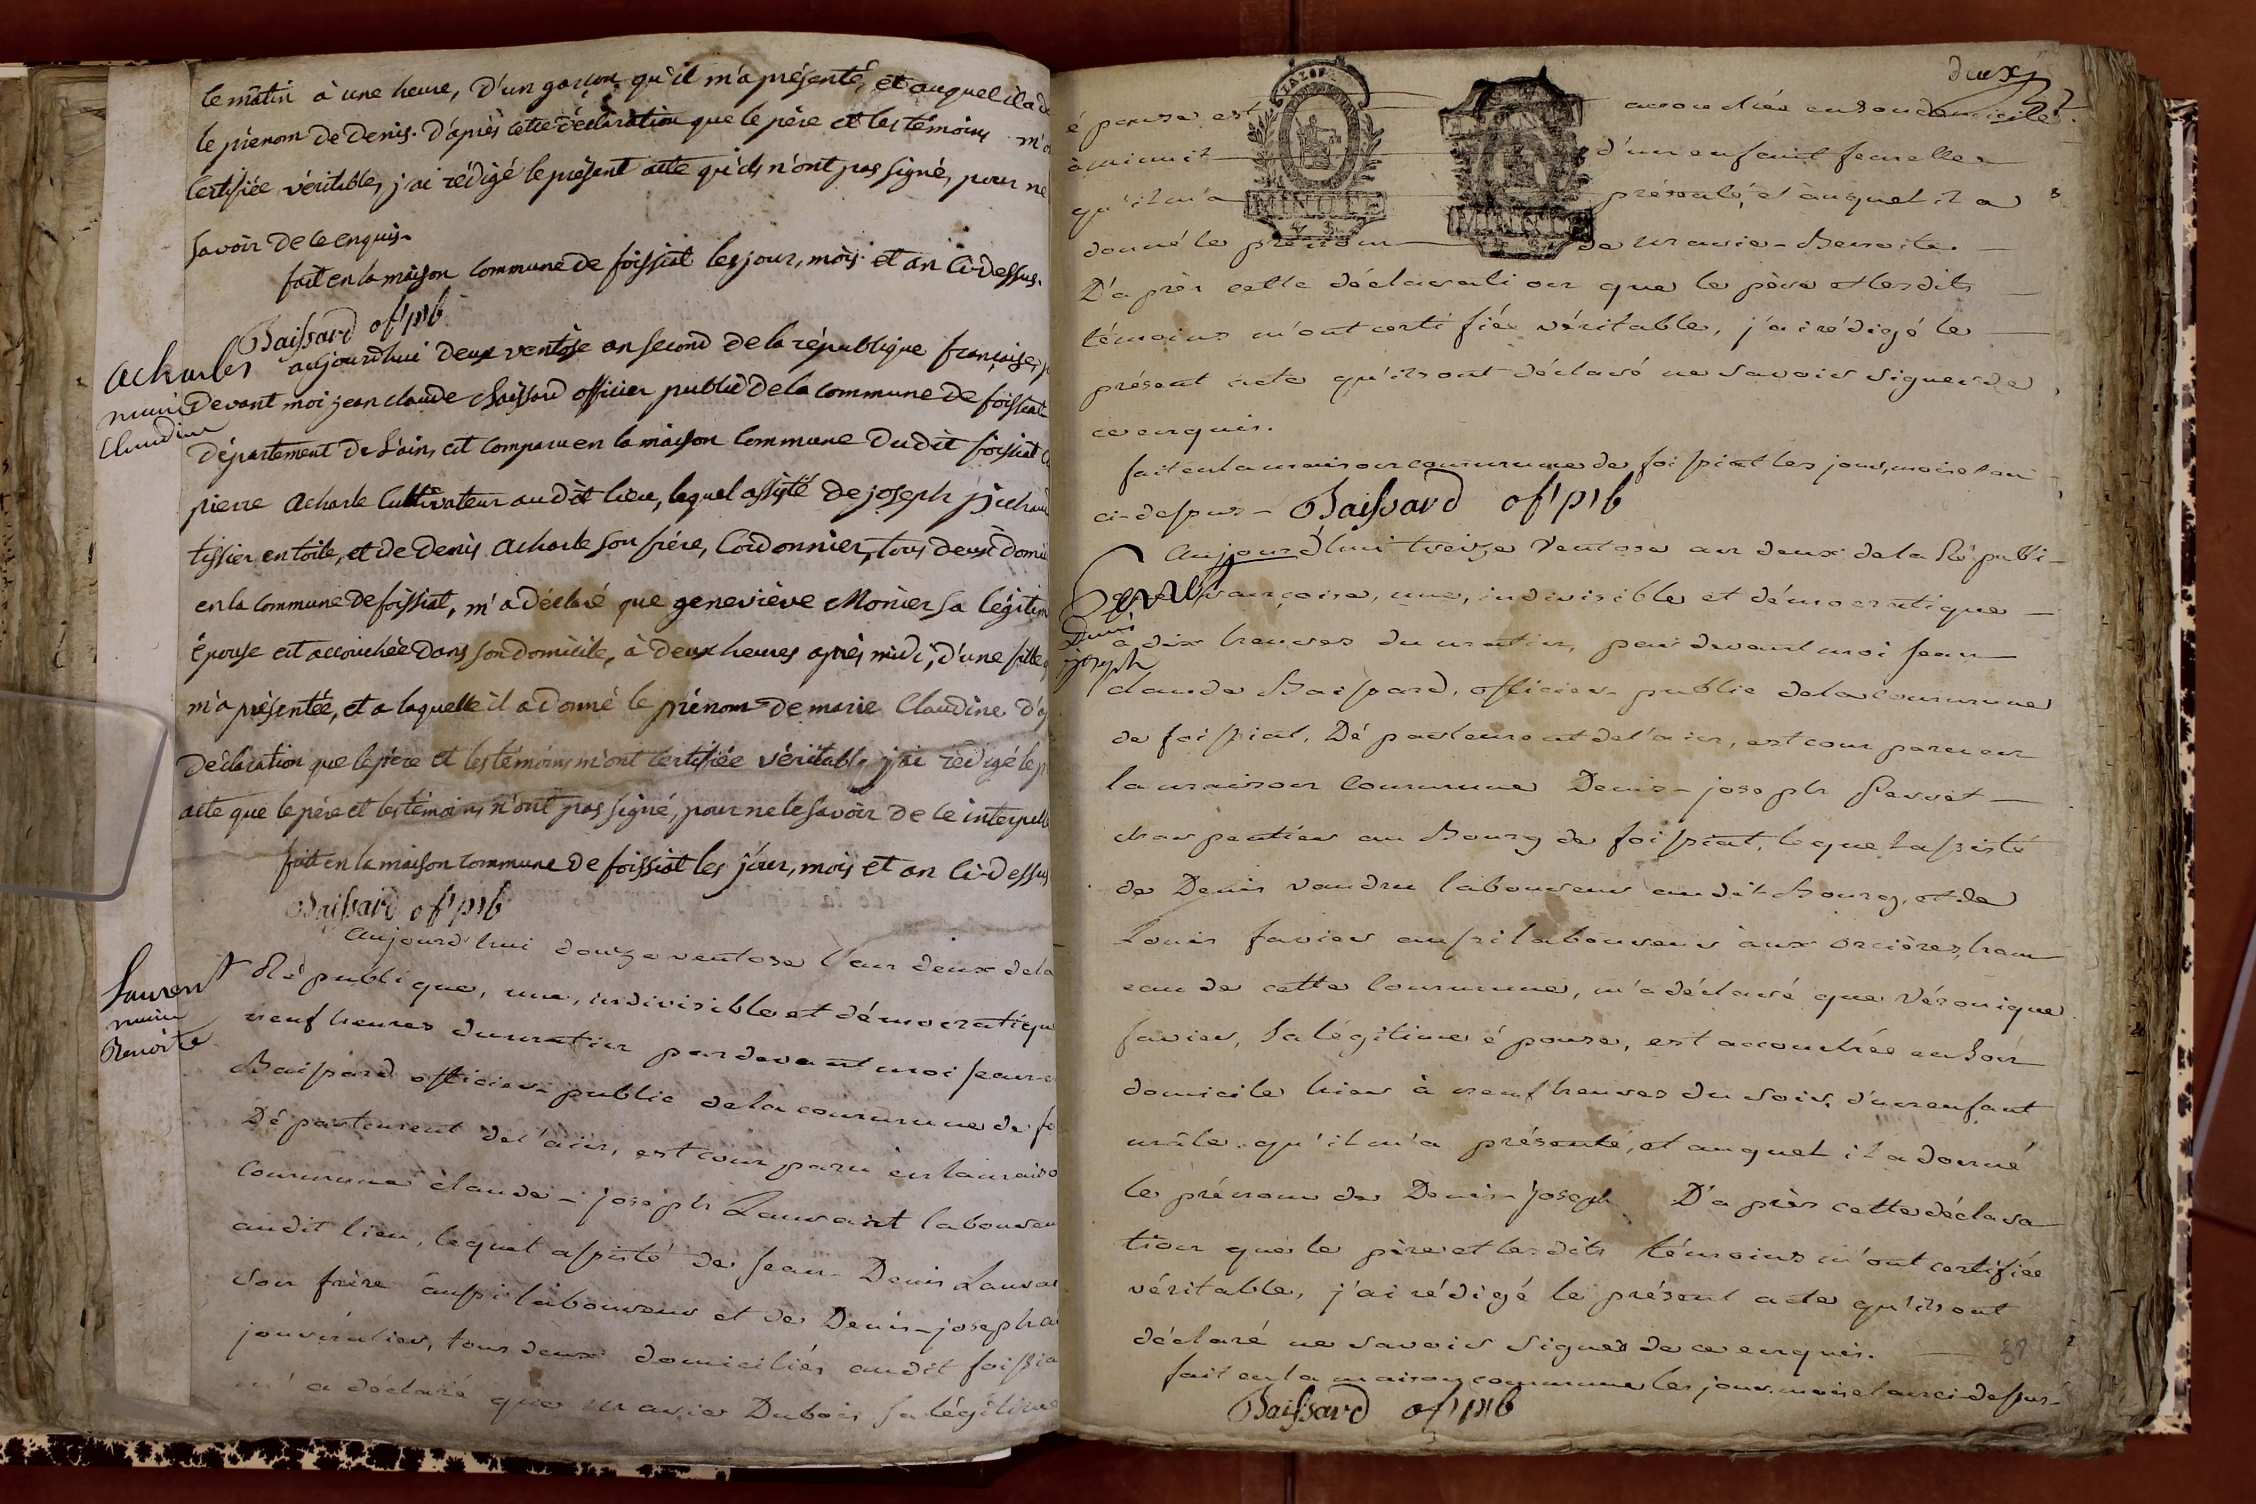 le matin à une heure, D'un garçon qu'il m'a présenté, et auquel il a d
le prénom de Denis. D'après cette déclaration que le père et les témoins m'o
Certifiée véritable, j'ai rédigé le présent acte qu'ils n'ont pas signé, pour ne
savoir de ce enquis.
fait en la maison commune de foissiat les jour, mois et an ci-dessus.
Baissard of. p.b
acharles
marie
Claudine
aujourdhui deux ventôse an second de la république française,
Devant moi jean claude Baissard officier public de la commune de foissiat
département de L'ain, est comparu en la maison Commune dudit foissiat
pierre acharle Cultivateur audit lieu, lequel assisté de joseph
tissier en toile, et de denis acharle son frère, Cordonnier, tous deux domi
en la commune de foissiat, m'a déclaré que geneviève Monier sa légitim
épouse est accouchée dans son domicile, à deux heures après midi, d'une fille
m'a présentée, et a laquelle il a donné le prénom de marie Claudine d'a
déclaration que le père et les témoins m'ont certifiée véritable, j'ai rédigé le p
acte que le père et les témoins n'ont pas signé, pour ne le savoir de ce interpell
fait en la maison commune de foissiat les jour, mois et an ci-dessus
Baissard of. p.b
Laurent
marie
Benoite
aujourd'hui douze ventose l'an deux de la
République, une, indivisible et démocratique
neuf heures du matin par devant moi jean-c
Baissard officier public de la commune de fo
Département de l'ain, est comparu en la maiso
Commune claude-joseph Laurent laboureu
audit lieu, lequel assisté de jean-Denis Lauren
son frère aussi laboureur et de Denis-joseph
journalier, tous deux domiciliés audit foissia
m'a déclaré que marie Dubois sa légitime
deux
épouse est accouchée en son domicile
à minuit d'un enfant femelle
qu'il m'a présenté, et auquel il a
donné le prénom de marie-Benoite.
MINUTE
4 S.
MINUTE
D'après cette déclaration que le père et lesdits
témoins m'ont certifiée véritable, j'ai rédigé le
présent acte qu'ils ont déclaré ne savoir signer de
ce enquis.
fait en la maison commune de foissiat les jour, mois et an
ci-dessus - Baissard of. p.b
Perret
Denis
joseph
Aujourd'hui treize Ventose an deux de la Républi-
que françoise, une, indivisible et démocratique
à dix heures du matin, par devant moi jean
claude Baissard, officier public de la commune
de foissiat, Département de l'ain, est comparu en
la maison Commune Denis-joseph Perret
charpentier au Bourg de foissiat, lequel assisté
de Denis vaudru laboureur audit Bourg, et de
Louis favier aussi laboureur aux orcières, ham
eau de cette Commune, m'a déclaré que Véronique
favier, sa légitime épouse, est accouchée en son
domicile hier à neuf heures du soir, d'un enfant
mâle qu'il m'a présenté, et auquel il a donné
le prénom de Denis-joseph D'après cette déclara
tion que le père et lesdits témoins m'ont certifiée
véritable, j'ai rédigé le présent acte qu'ils ont
déclaré ne savoir signer de ce enquis.
fait en la maison commune les jour, mois et an ci-dessus
Baissard of. p.b